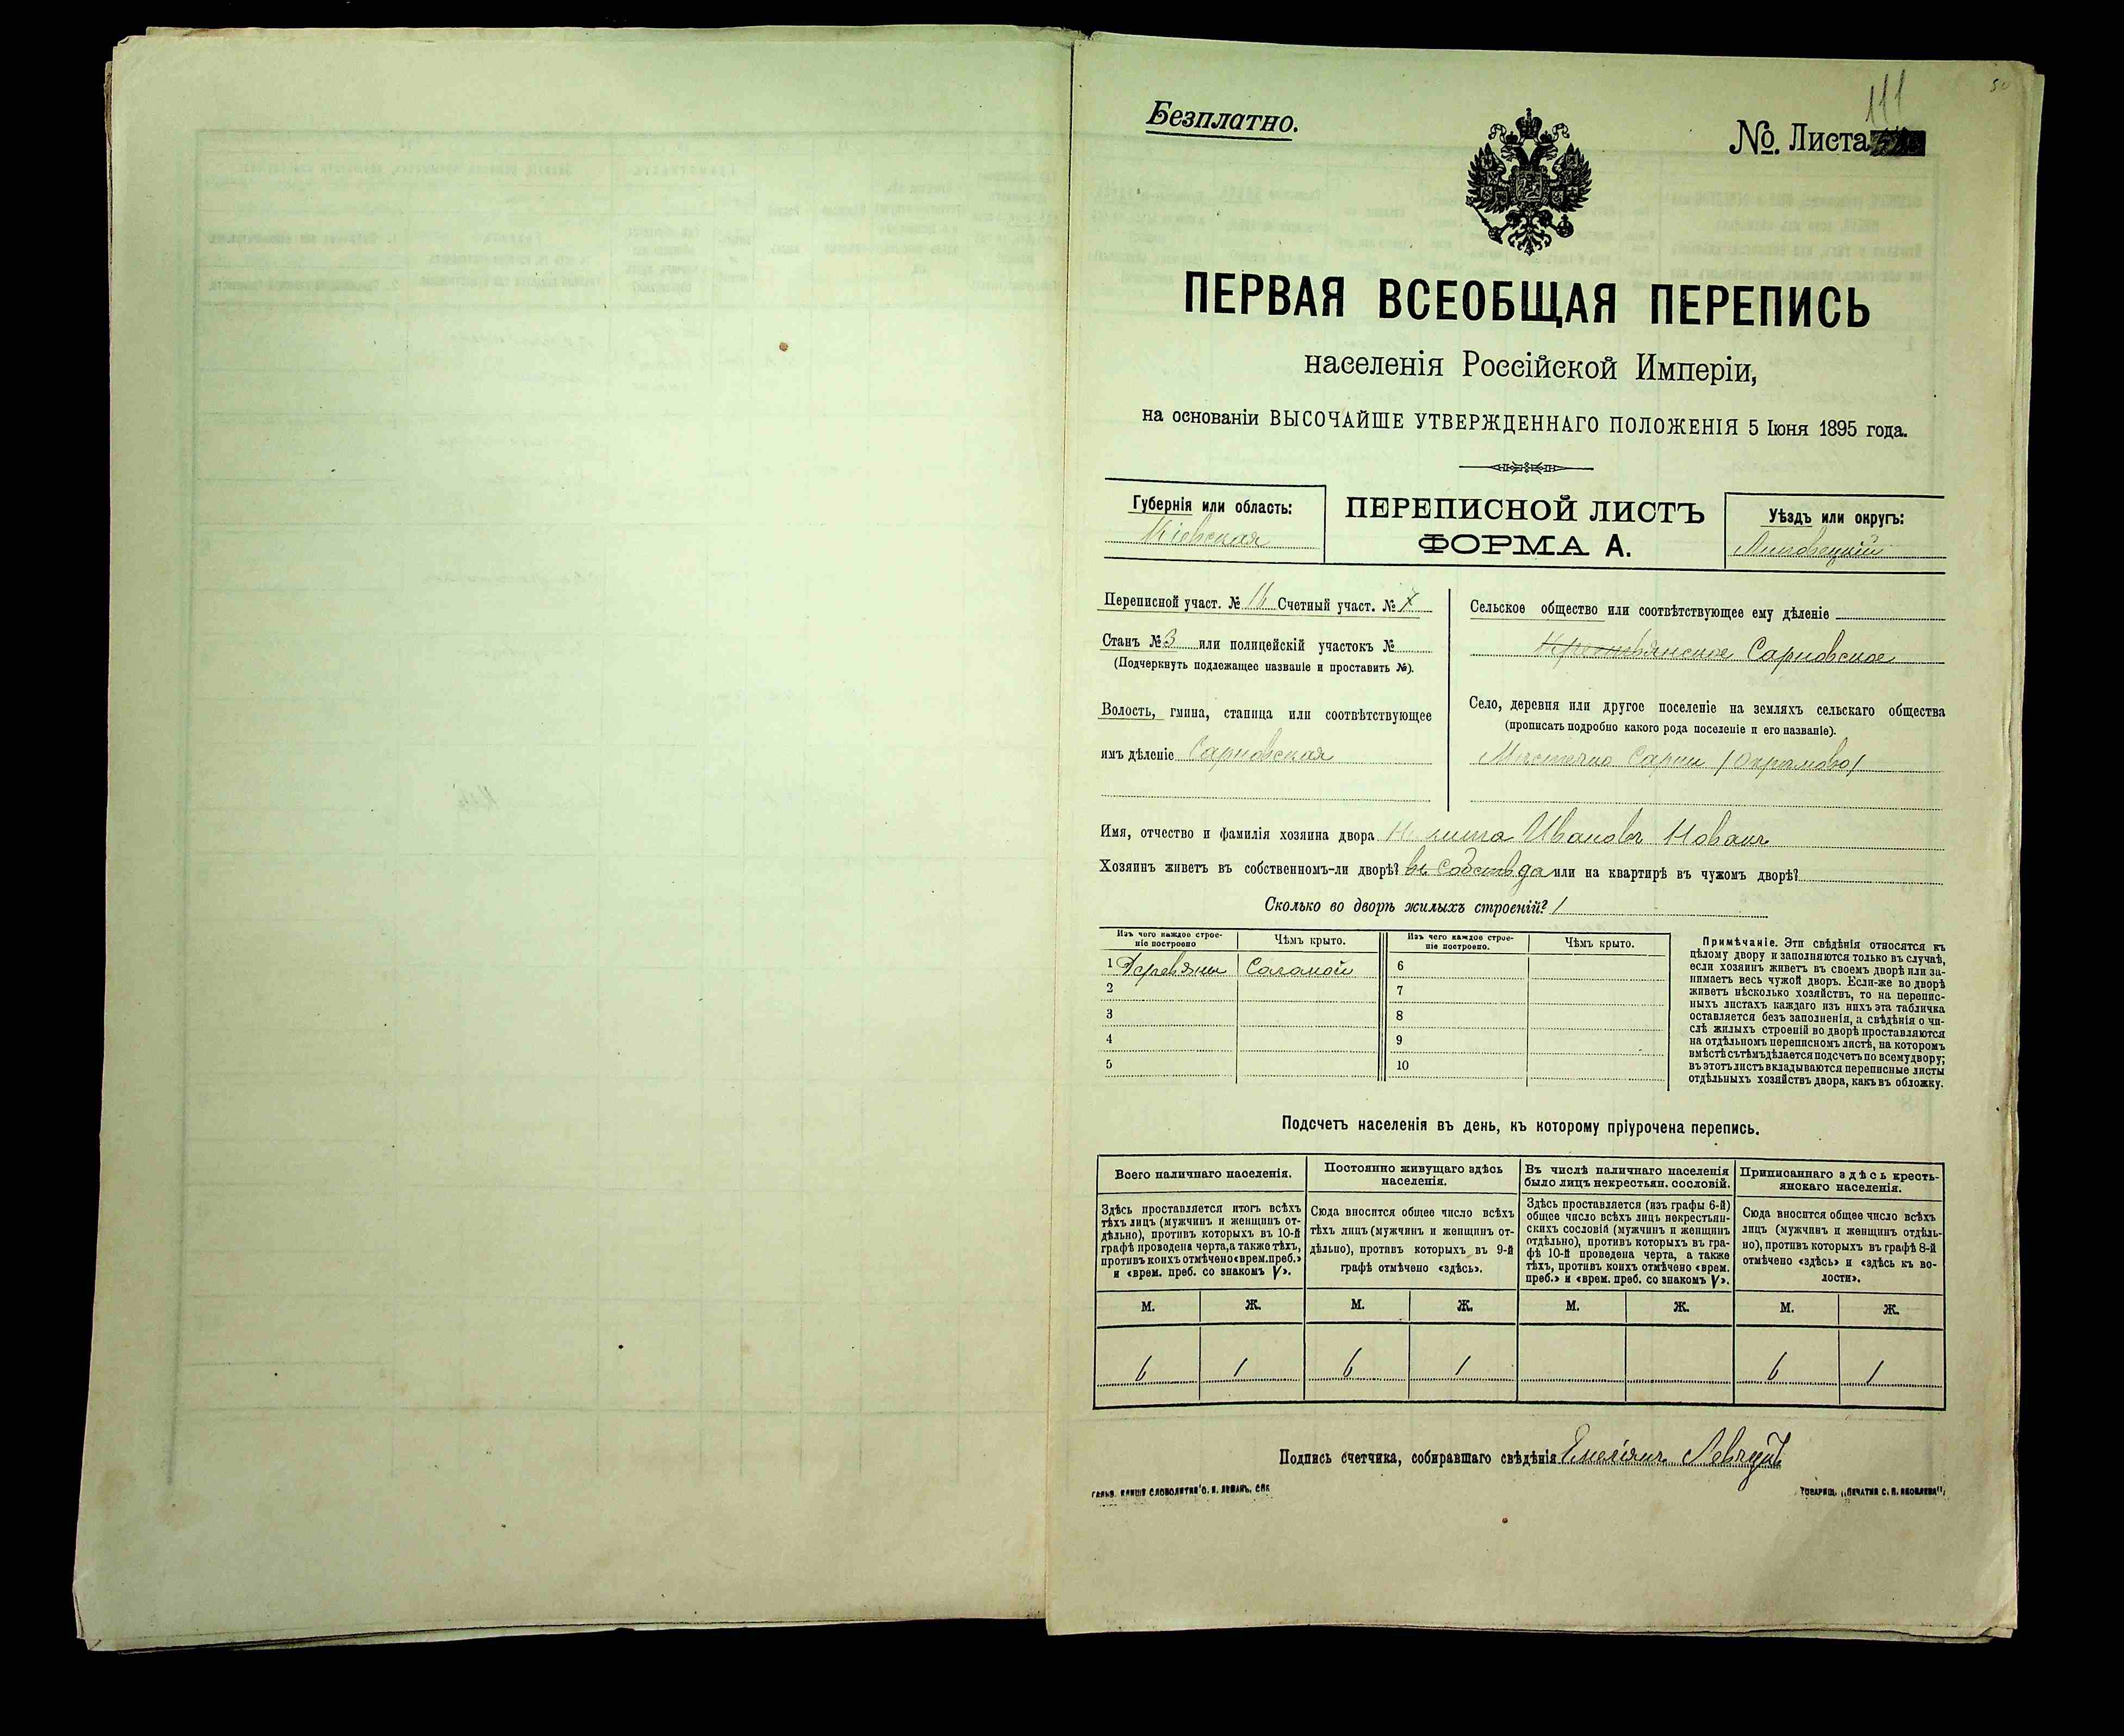 50
Безплатно.
111
№. Листа
ПЕРВАЯ ВСЕОБЩАЯ ПЕРЕПИСЬ
населенія Россійской Имперіи,
на основаніи ВЫСОЧАЙШЕ УТВЕРЖДЕННАГО ПОЛОЖЕНІЯ 5 Іюня 1895 года.
Губернія или область:
Кіевская
ПЕРЕПИСНОЙ ЛИСТЪ
ФОРМА А.
Уѣздъ или округъ:
Липовецкій
Переписной участ. № 16 Счетный участ. №
Станъ № 3 или полицейскій участокъ №
(Подчеркнуть подлежащее названіе и проставить №).
Волость, гмина, станица или соотвѣтствующее
имъ дѣленіе Сарновская
Сельское общество или соотвѣтствующее ему дѣленіе
Сарновское
Село, деревня или другое поселеніе на земляхъ сельскаго общества
(прописать подробно какого рода поселеніе и его названіе).
Мѣстечко Сарны
Имя, отчество и фамилія хозяина двора Никита Ивановъ Новакъ
Хозяинъ живетъ въ собственномъ-ли дворѣ? въ собств да или на квартирѣ въ чужомъ дворѣ?
Сколько во дворѣ жилыхъ строеній? 1
Изъ чего каждое строе-
ніе построено
Чѣмъ крыто.
Изъ чего каждое строе-
ніе построено.
Чѣмъ крыто.
1 Деревянн Саламой 6
2 7
3 8
4 9
5 10
Примѣчаніе. Эти свѣдѣнія относятся къ
цѣлому двору и заполняются только въ случаѣ,
если хозяинъ живетъ въ своемъ дворѣ или за-
нимаетъ весь чужой дворъ. Если-же во дворѣ
живетъ нѣсколько хозяйствъ, то на перепис-
ныхъ листахъ каждаго изъ нихъ эта табличка
оставляется безъ заполненія, а свѣдѣнія о чи-
слѣ жилыхъ строеній во дворѣ проставляются
на отдѣльномъ переписномъ листѣ, на которомъ
вмѣстѣ съ тѣмъ дѣлается подсчетъ по всему двору;
въ этотъ листъ вкладываются переписные листы
отдѣльныхъ хозяйствъ двора, какъ въ обложку.
Подсчетъ населенія въ день, къ которому пріурочена перепись.
Всего наличнаго населенія.
Здѣсь проставляется итогъ всѣхъ
тѣхъ лицъ (мужчинъ и женщинъ от-
дѣльно), противъ которыхъ въ 10-й
графѣ проведена черта, а также тѣхъ,
противъ коихъ отмѣчено «врем. преб.»
и «врем. преб. со знакомъ V».
Постоянно живущаго здѣсь
населенія.
Сюда вносится общее число всѣхъ
тѣхъ лицъ (мужчинъ и женщинъ от-
дѣльно), противъ которыхъ въ 9-й
графѣ отмѣчено «здѣсь».
Въ числѣ наличнаго населенія
было лицъ некрестьян. сословій.
Здѣсь проставляется (изъ графы 6-й)
общее число всѣхъ лицъ некрестьян-
скихъ сословій (мужчинъ и женщинъ
отдѣльно), противъ которыхъ въ гра-
фѣ 10-й проведена черта, а также
тѣхъ, противъ коихъ отмѣчено «врем.
преб.» и «врем. преб. со знакомъ V».
Приписаннаго здѣсь кресть-
янскаго населенія.
Сюда вносится общее число всѣхъ
лицъ (мужчинъ и женщинъ отдѣль-
но), противъ которыхъ въ графѣ 8-й
отмѣчено «здѣсь» и «здѣсь къ во-
лости».
М. Ж. М. Ж. М. Ж. М. Ж.
6 1 6 1 6 1
Подпись счетчика, собиравшаго свѣдѣнія Емеліянъ
ГАЛЬВ. КЛИШЕ СЛОВОЛИТНИ О. И. ЛЕМАНЪ, СПБ
ТОВАРИЩ. „ПЕЧАТНЯ С. П. ЯКОВЛЕВА".